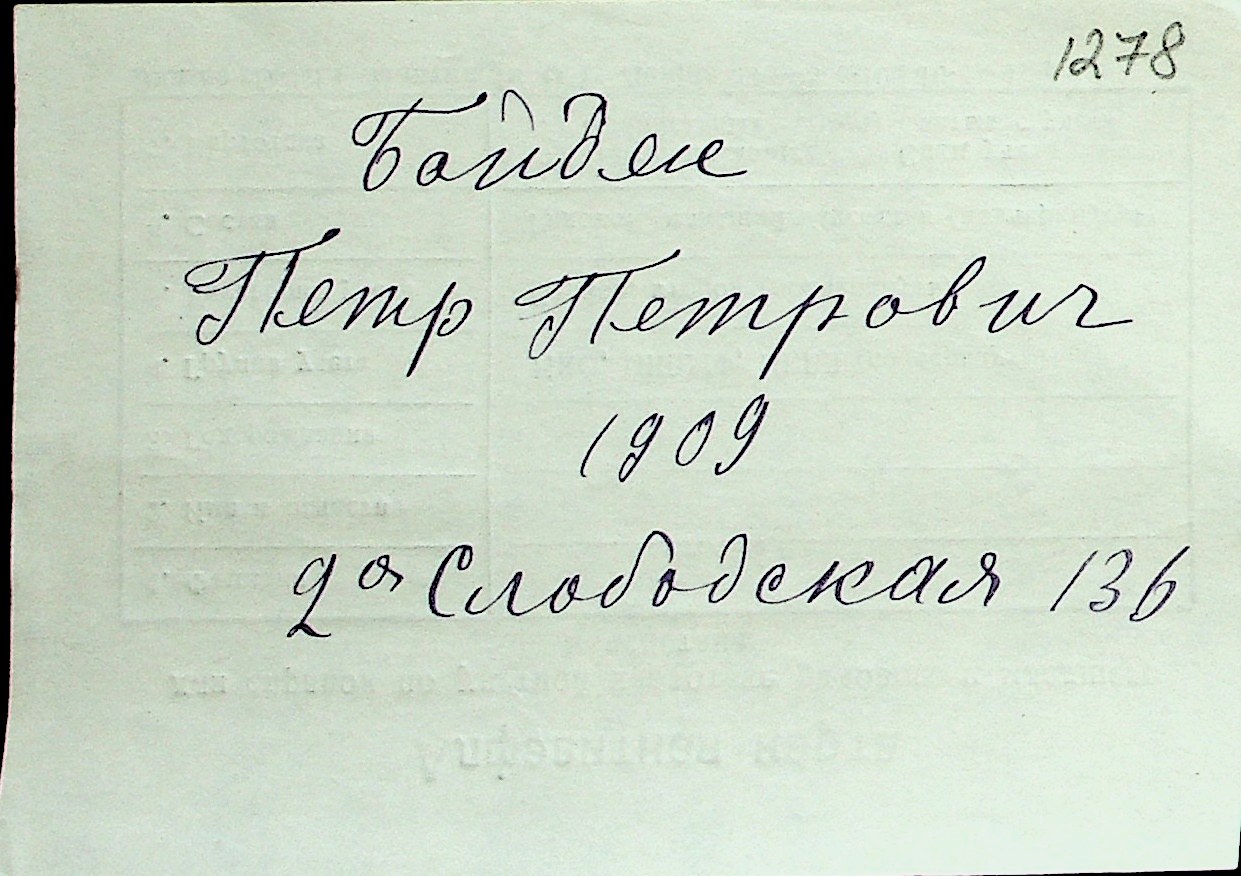 1278
Петр Петрович
1909
2ая Слободская 136